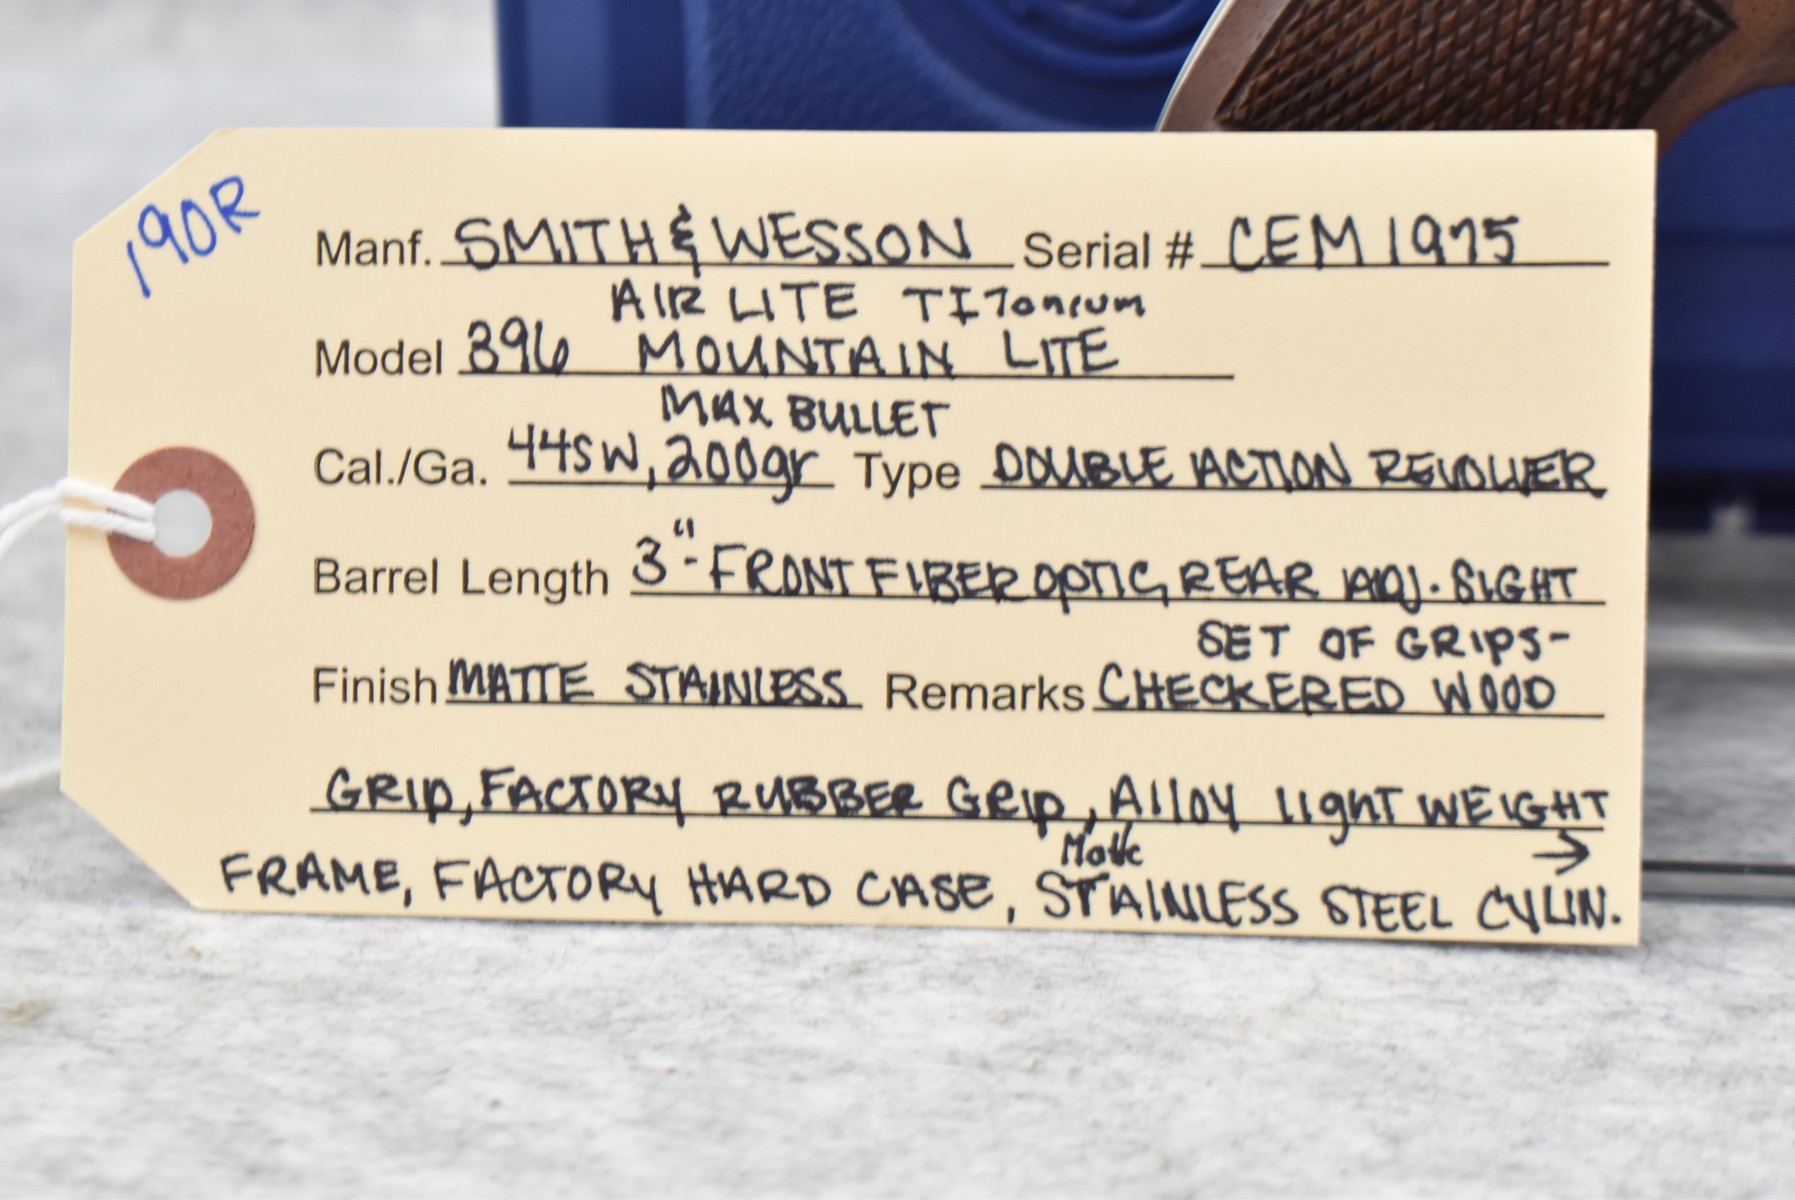 190R
Manf. SMITH & WESSON Serial # CEM1975
AIR LITE TITanium
Model 396 MOUNTAIN LITE
MAX BULLET
Cal./Ga. 44SW, 200gr Type DOUBLE ACTION REVOLVER
Barrel Length 3"- FRONT FIBER OPTIC, REAR ADJ. SIGHT
SET OF GRIPS-
Finish MATTE STAINLESS Remarks CHECKERED WOOD
GRIP, FACTORY RUBBER GRIP, Alloy light WEIGHT
Matte →
FRAME, FACTORY HARD CASE, STAINLESS STEEL CYLIN.